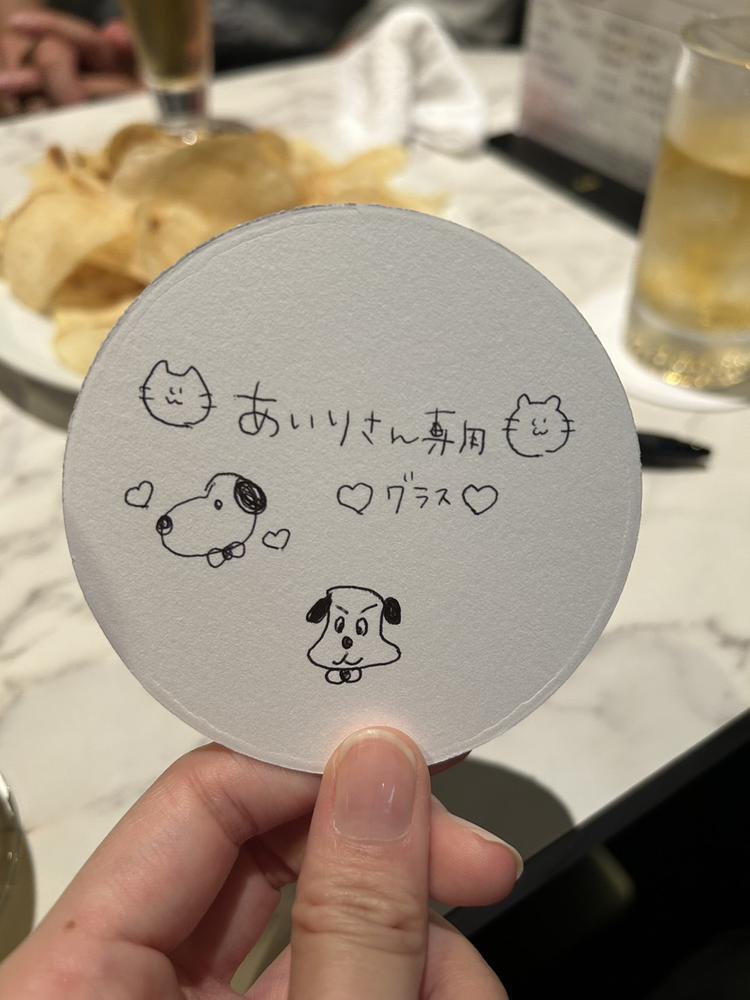 あいりさん専用
♡グラス♡